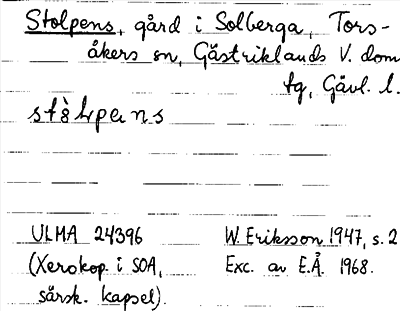 Stolpens, gård i Solberga, Tors-
åkers sn, Gästriklands V. dom
tg, Gävl. l.
ULMA 24396 W. Eriksson 1947, s. 2
(Xerokop. i SOA, Exc. av E.Å. 1968.
särsk. kapsel).